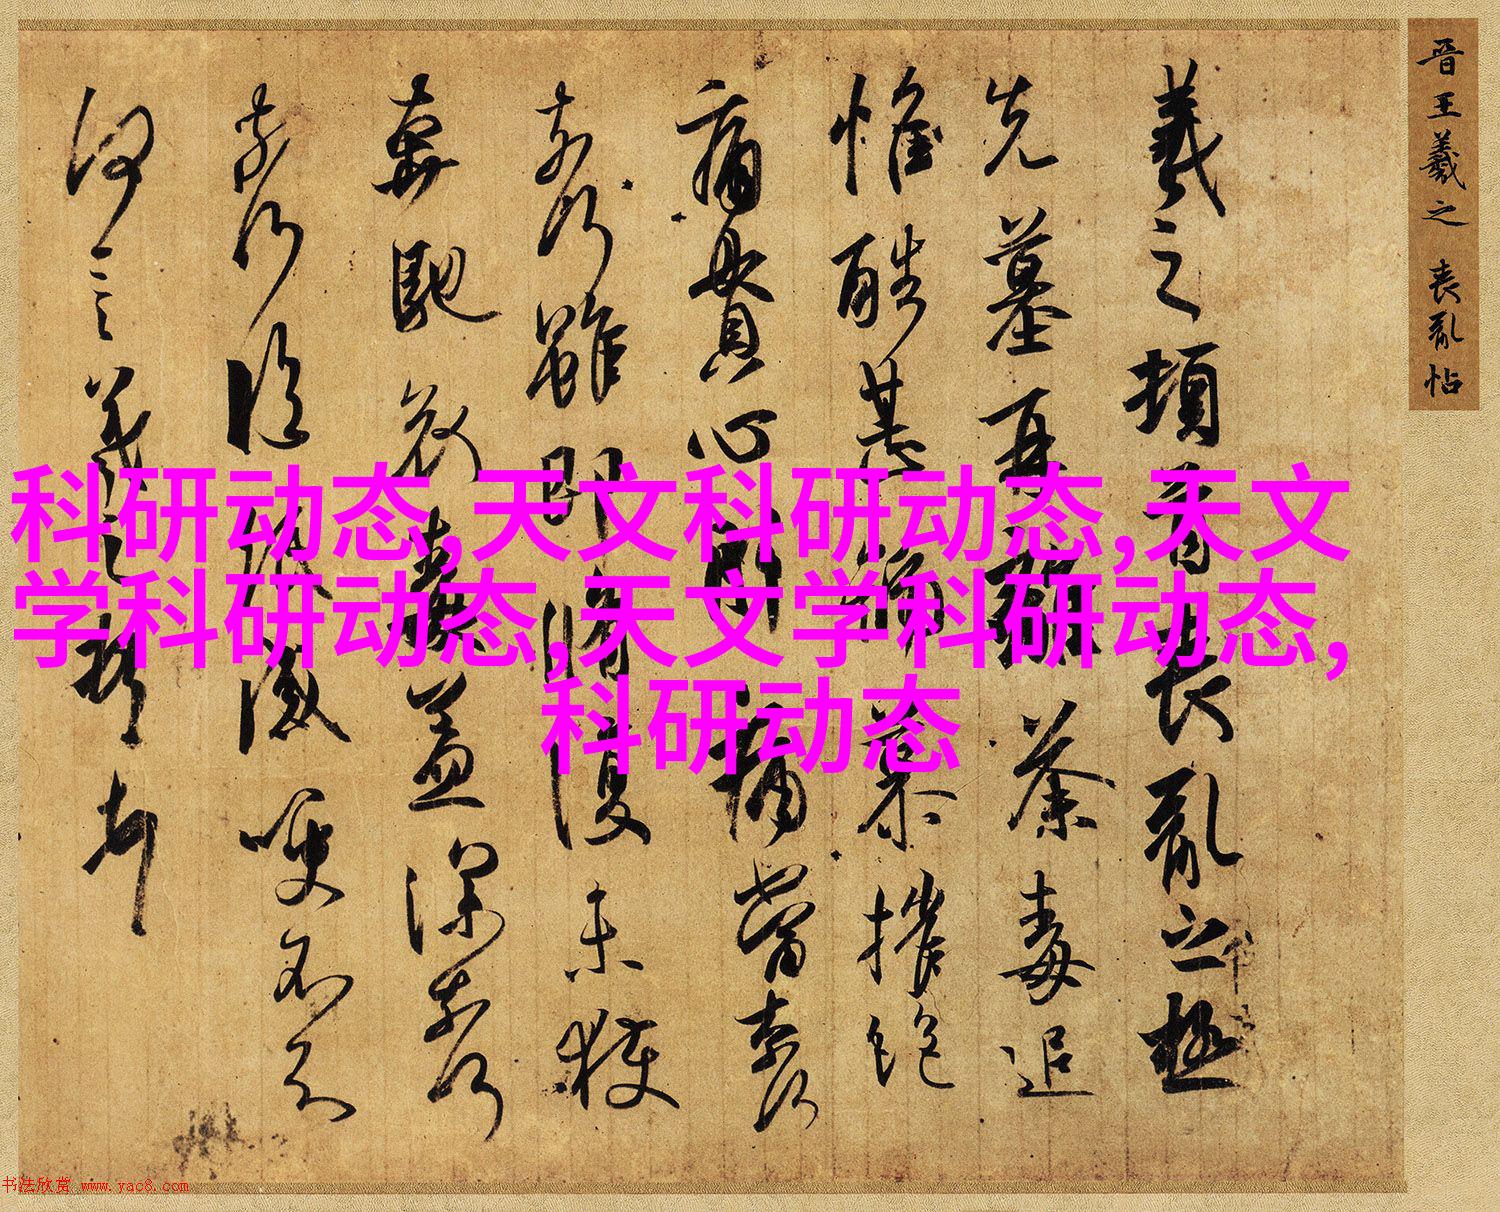 晋王羲之 喪亂帖
羲之頓首喪亂之極
先墓再離荼毒追
惟酷甚號慕摧絶
痛貫心肝痛當奈何
奈何雖即脩復未獲
奔馳哀毒益深奈何
奈何臨紙感哽不知
何言羲之頓首頓首
科研动态,天文科研动态,天文
学科研动态,天文学科研动态,
科研动态
书法欣赏 www.yac8.com